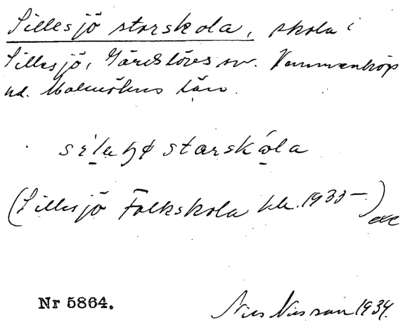 Sillesjö storskola, skola i
Sillesjö, Gärdslövs sn. Vemmenhögs
hd. Malmöhus län.
storskåla
(Sillesjö Folkskola 1933-)
Nr 5864. Nils Nilsson 1934.